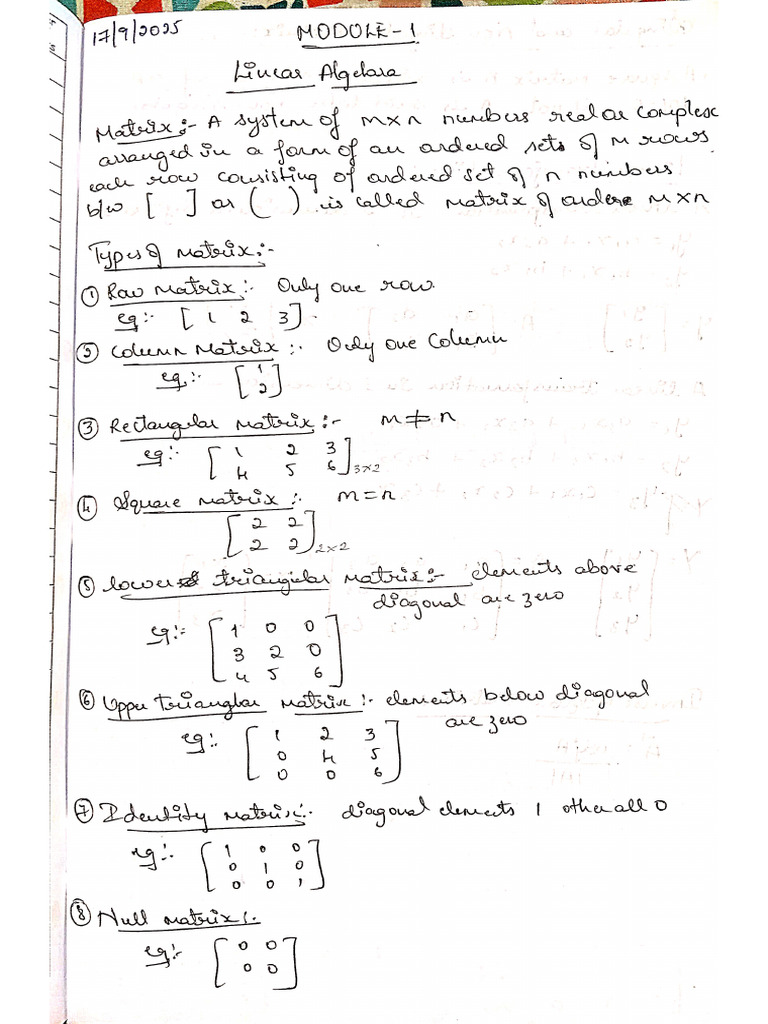 17/9/2025
MODULE-1
Linear Algebra
Matrix:- A system of m×n numbers real or complex
arranged in a form of an ordered sets of m rows
each row consisting of ordered set of n numbers
b/w [ ] or ( ) is called matrix of order m×n
Types of matrix:-
① Row Matrix:- Only one row.
eg:- [ 1 2 3 ].
② Column Matrix:- Only one column
eg:- [ 1
2 ]
③ Rectangular matrix:- m ≠ n
eg:- [ 1 2 3
4 5 6 ]3×2
④ Square matrix:- m = n
[ 2 2
2 2 ]2×2
⑤ lower triangular matrix:- elements above
diagonal are zero
eg:- [ 1 0 0
3 2 0
4 5 6 ]
⑥ Upper trianglar matrix:- elements below diagonal
are zero
eg:- [ 1 2 3
0 4 5
0 0 6 ]
⑦ Identity matrix:- diagonal elements 1 other all 0
eg:- [ 1 0 0
0 1 0
0 0 1 ]
⑧ Null matrix:-
eg:- [ 0 0
0 0 ]